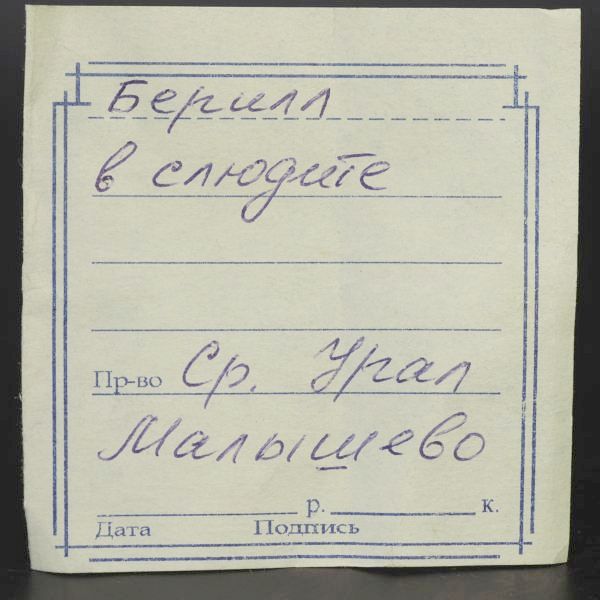 Берилл
в слюдите
Пр-во Ср. Урал
Малышево
р. к.
Дата Подпись